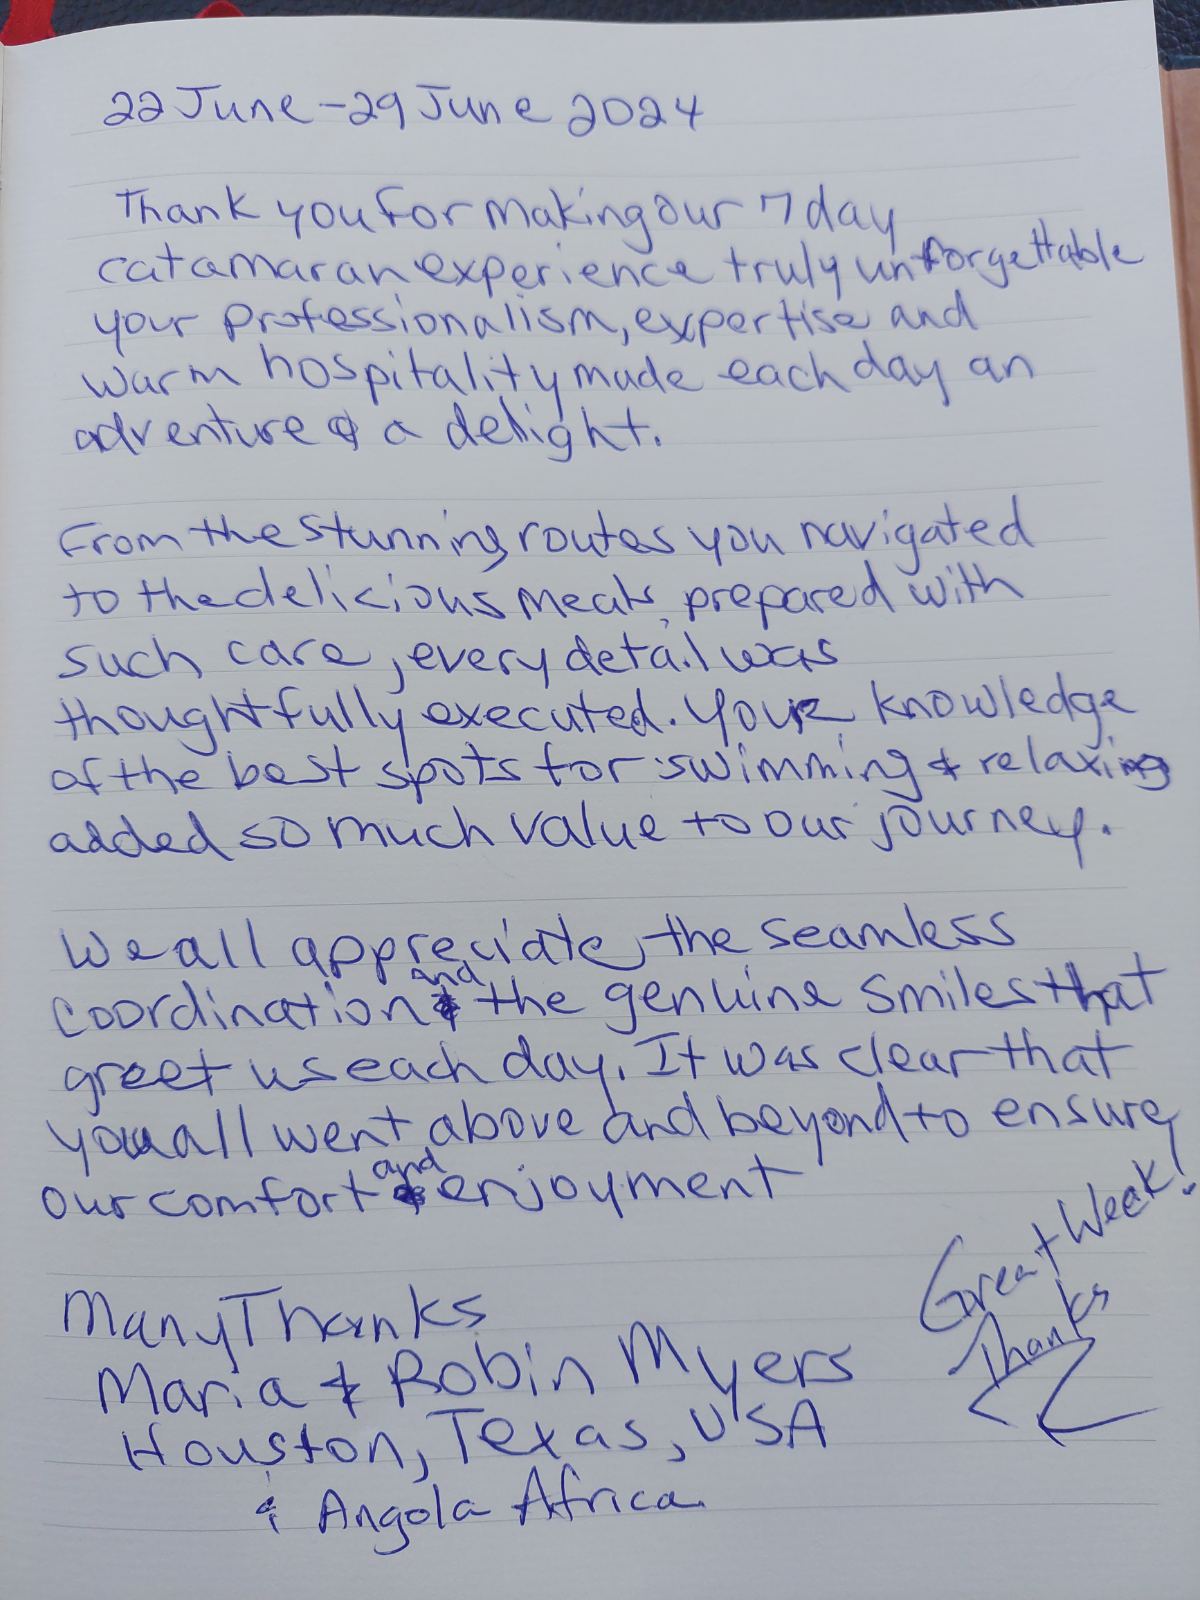 22 June - 29 June 2024
Thank you for making our 7 day
catamaran experience truly unforgettable
your professionalism, expertise and
warm hospitality made each day an
adventure & a delight.
From the stunning routes you navigated
to the delicious meals prepared with
such care, every detail was
thoughtfully executed. Your knowledge
of the best spots for swimming & relaxing
added so much value to our journey.
We all appreciate the seamless
coordination and the genuine smiles that
greet us each day. It was clear that
you all went above and beyond to ensure
our comfort and enjoyment
Many Thanks
Maria & Robin Myers
Houston, Texas, USA
& Angola Africa.
Great Week!
Thanks